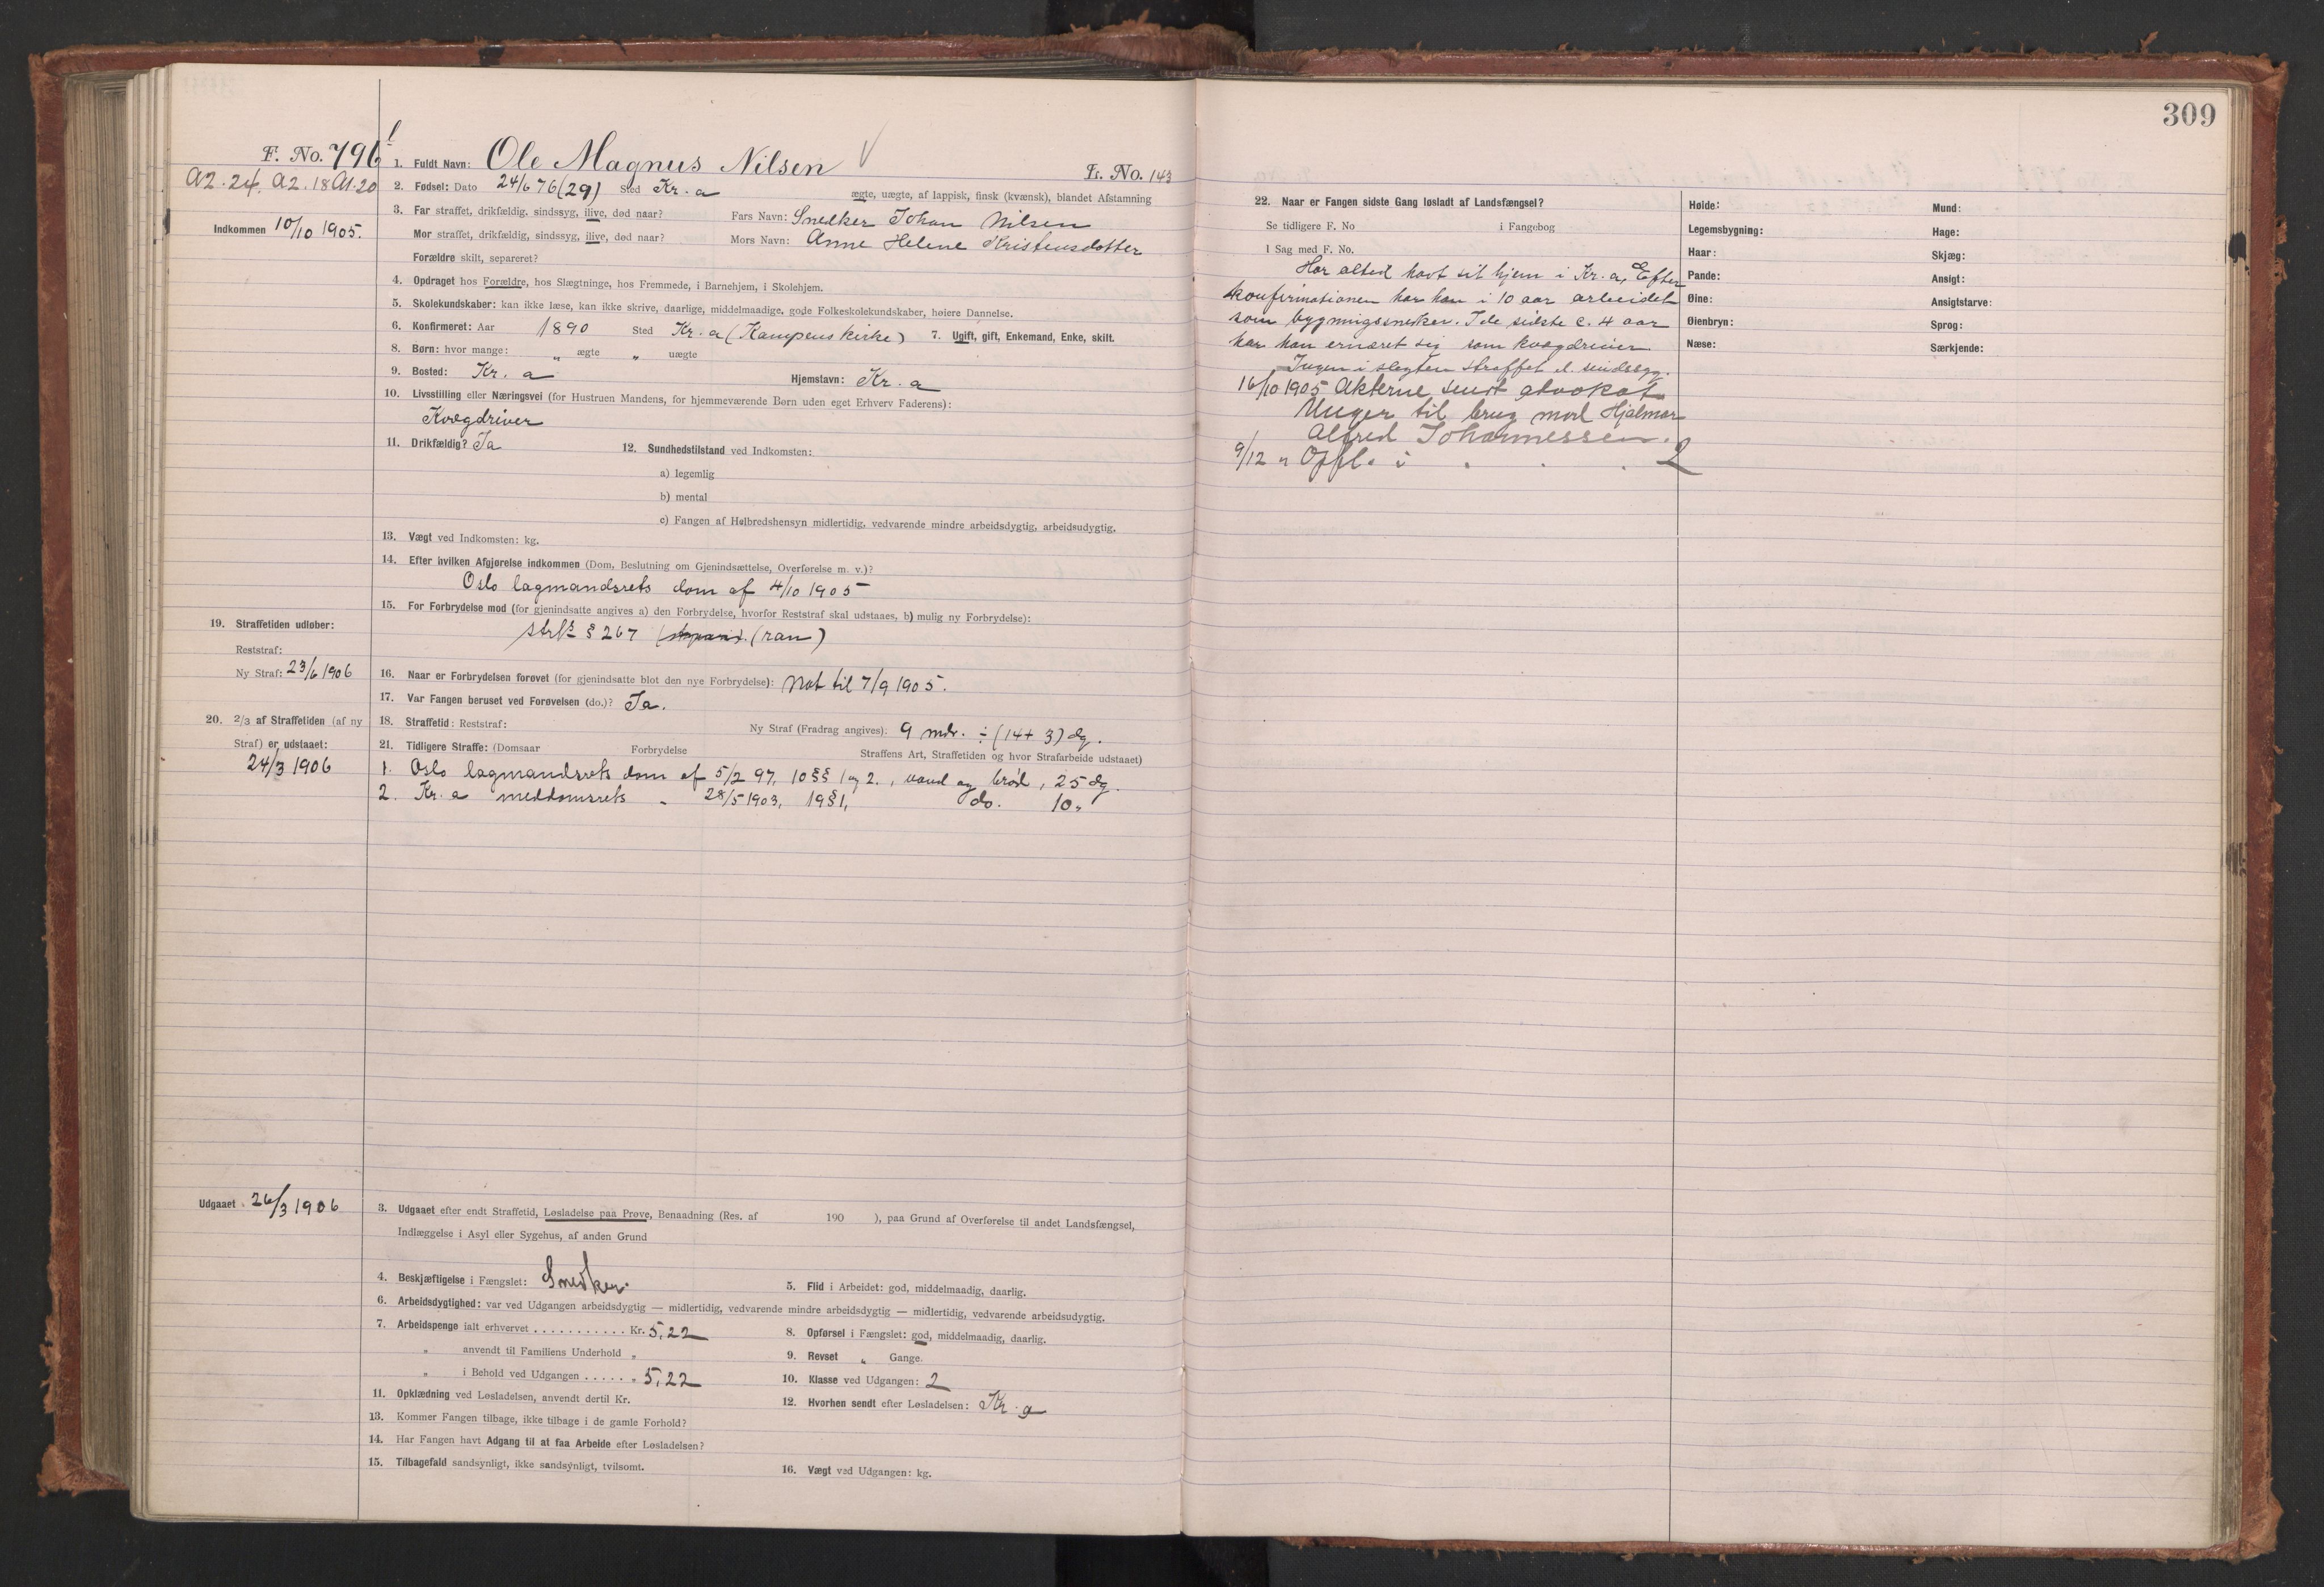 309
F. No. 796
A2.24. A2.18 A1.20
Indkommen 10/10 1905.
1. Fuldt Navn: Ole Magnus Nilsen
L. No. 143
2. Fødsel: Dato 24/6 76 (29) Sted Kr.a
ægte, uægte, af lappisk, finsk (kvænsk), blandet Afstamning
3. Far straffet, drikfældig, sindssyg, ilive, død naar? Fars Navn: Snedker Johan Nilsen
Mor straffet, drikfældig, sindssyg, ilive, død naar? Mors Navn: Anne Helene Kristensdatter
Forældre skilt, separeret?
4. Opdraget hos Forældre, hos Slægtninge, hos Fremmede, i Barnehjem, i Skolehjem.
5. Skolekundskaber: kan ikke læse, kan ikke skrive, daarlige, middelmaadige, gode Folkeskolekundskaber, høiere Dannelse.
6. Konfirmeret: Aar 1890 Sted Kr.a (Kampens kirke) 7. Ugift, gift, Enkemand, Enke, skilt.
8. Børn: hvor mange: „ ægte „ uægte
9. Bosted: Kr.a Hjemstavn: Kr.a
10. Livsstilling eller Næringsvei (for Hustruen Mandens, for hjemmeværende Børn uden eget Erhverv Faderens):
Kvægdriver
11. Drikfældig? Ja 12. Sundhedstilstand ved Indkomsten:
a) legemlig
b) mental
c) Fangen af Helbredshensyn midlertidig, vedvarende mindre arbeidsdygtig, arbeidsudygtig.
13. Vægt ved Indkomsten: kg.
14. Efter hvilken Afgjørelse indkommen (Dom, Beslutning om Gjenindsættelse, Overførelse m. v.)?
Oslo lagmandsrets dom af 4/10 1905
15. For Forbrydelse mod (for gjenindsatte angives a) den Forbrydelse, hvorfor Reststraf skal udstaaes, b) mulig ny Forbrydelse):
strfl § 267 (ran)
19. Straffetiden udløber:
Reststraf:
Ny Straf: 23/6 1906
16. Naar er Forbrydelsen forøvet (for gjenindsatte blot den nye Forbrydelse): Nat til 7/9 1905.
17. Var Fangen beruset ved Forøvelsen (do.)? Ja.
20. 2/3 af Straffetiden (af ny
Straf) er udstaaet:
24/3 1906
18. Straffetid: Reststraf: Ny Straf (Fradrag angives): 9 mdr. ÷ (14+3) dg.
21. Tidligere Straffe: (Domsaar Forbrydelse Straffens Art, Straffetiden og hvor Strafarbeide udstaaet)
1. Oslo lagmandsrets dom af 5/2 97, 10 §§ 1 og 2., vand og brød, 25 dg.
2. Kr.a meddomsrets „ 28/5 1903, 19 § 1, do. 10 „
Udgaaet 26/3 1906
3. Udgaaet efter endt Straffetid, Løsladelse paa Prøve, Benaadning (Res. af 190 ), paa Grund af Overførelse til andet Landsfængsel,
Indlæggelse i Asyl eller Sygehus, af anden Grund
4. Beskjæftigelse i Fængslet: Snedker. 5. Flid i Arbeidet: god, middelmaadig, daarlig.
6. Arbeidsdygtighed: var ved Udgangen arbeidsdygtig — midlertidig, vedvarende mindre arbeidsdygtig — midlertidig, vedvarende arbeidsudygtig.
7. Arbeidspenge ialt erhvervet ........... Kr. 5,22 8. Opførsel i Fængslet: god, middelmaadig, daarlig.
„ anvendt til Familiens Underhold „ 9. Revset „ Gange.
„ i Behold ved Udgangen ...... „ 5,22 10. Klasse ved Udgangen: 2
11. Opklædning ved Løsladelsen, anvendt dertil Kr. 12. Hvorhen sendt efter Løsladelsen: Kr.a
13. Kommer Fangen tilbage, ikke tilbage i de gamle Forhold?
14. Har Fangen havt Adgang til at faa Arbeide efter Løsladelsen?
15. Tilbagefald sandsynligt, ikke sandsynligt, tvilsomt. 16. Vægt ved Udgangen: kg.
22. Naar er Fangen sidste Gang løsladt af Landsfængsel?
Se tidligere F. No i Fangebog
I Sag med F. No.
Har altid havt sit hjem i Kr.a, Efter
konfirmationen har han i 10 aar arbeidet
som bygningssnedker. I de sidste c. 4 aar
har han ernæret sig som kvægdriver.
Ingen i slegten straffet el. sindssyg.
16/10 1905 Akterne sendt advokat
Unger til brug mod Hjalmar
Alfred Johannessen.
9/12 „ Opfl. i . . . 2
Høide:
Legemsbygning:
Haar:
Pande:
Øine:
Øienbryn:
Næse:
Mund:
Hage:
Skjæg:
Ansigt:
Ansigtsfarve:
Sprog:
Særkjende: